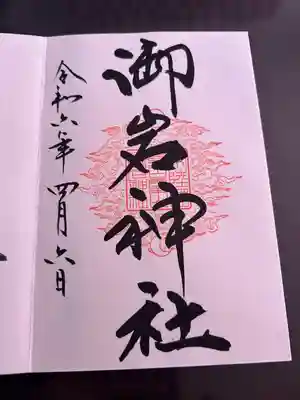 御岩神社
令和六年 四月六日